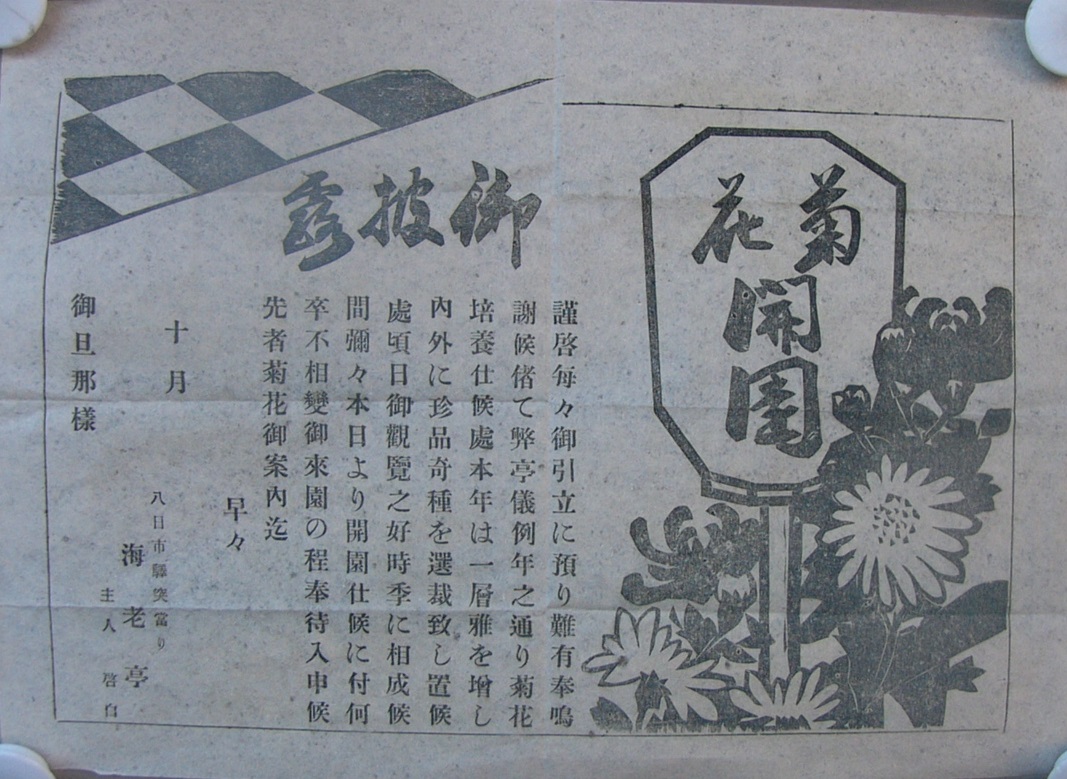 菊花
開園
御披露
謹啓毎々御引立に預り難有奉鳴
謝候偖て弊亭儀例年之通り菊花
培養仕候處本年は一層雅を增し
內外に珍品奇種を選裁致し置候
處頃日御觀覽之好時季に相成候
間彌々本日より開園仕候に付何
卒不相變御來園の程奉待入申候
先者菊花御案內迄
早々
十月
八日市驛突當り
海老亭
主人 啓白
御旦那樣